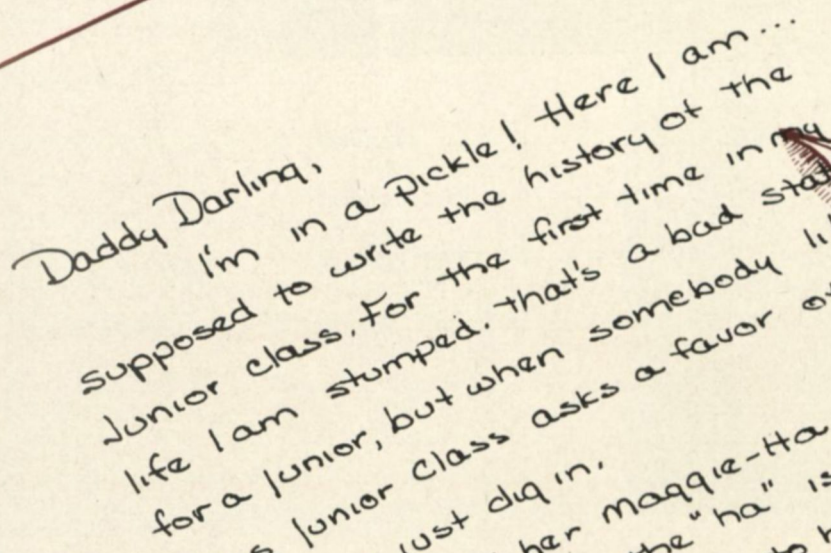 Daddy Darling,
I'm in a pickle! Here I am...
supposed to write the history of the
Junior class. For the first time in my
life I am stumped. That's a bad
for a Junior, but when somebody
Junior Class asks a favor
just dig in.
her Maggie-Ha
the "ha" is